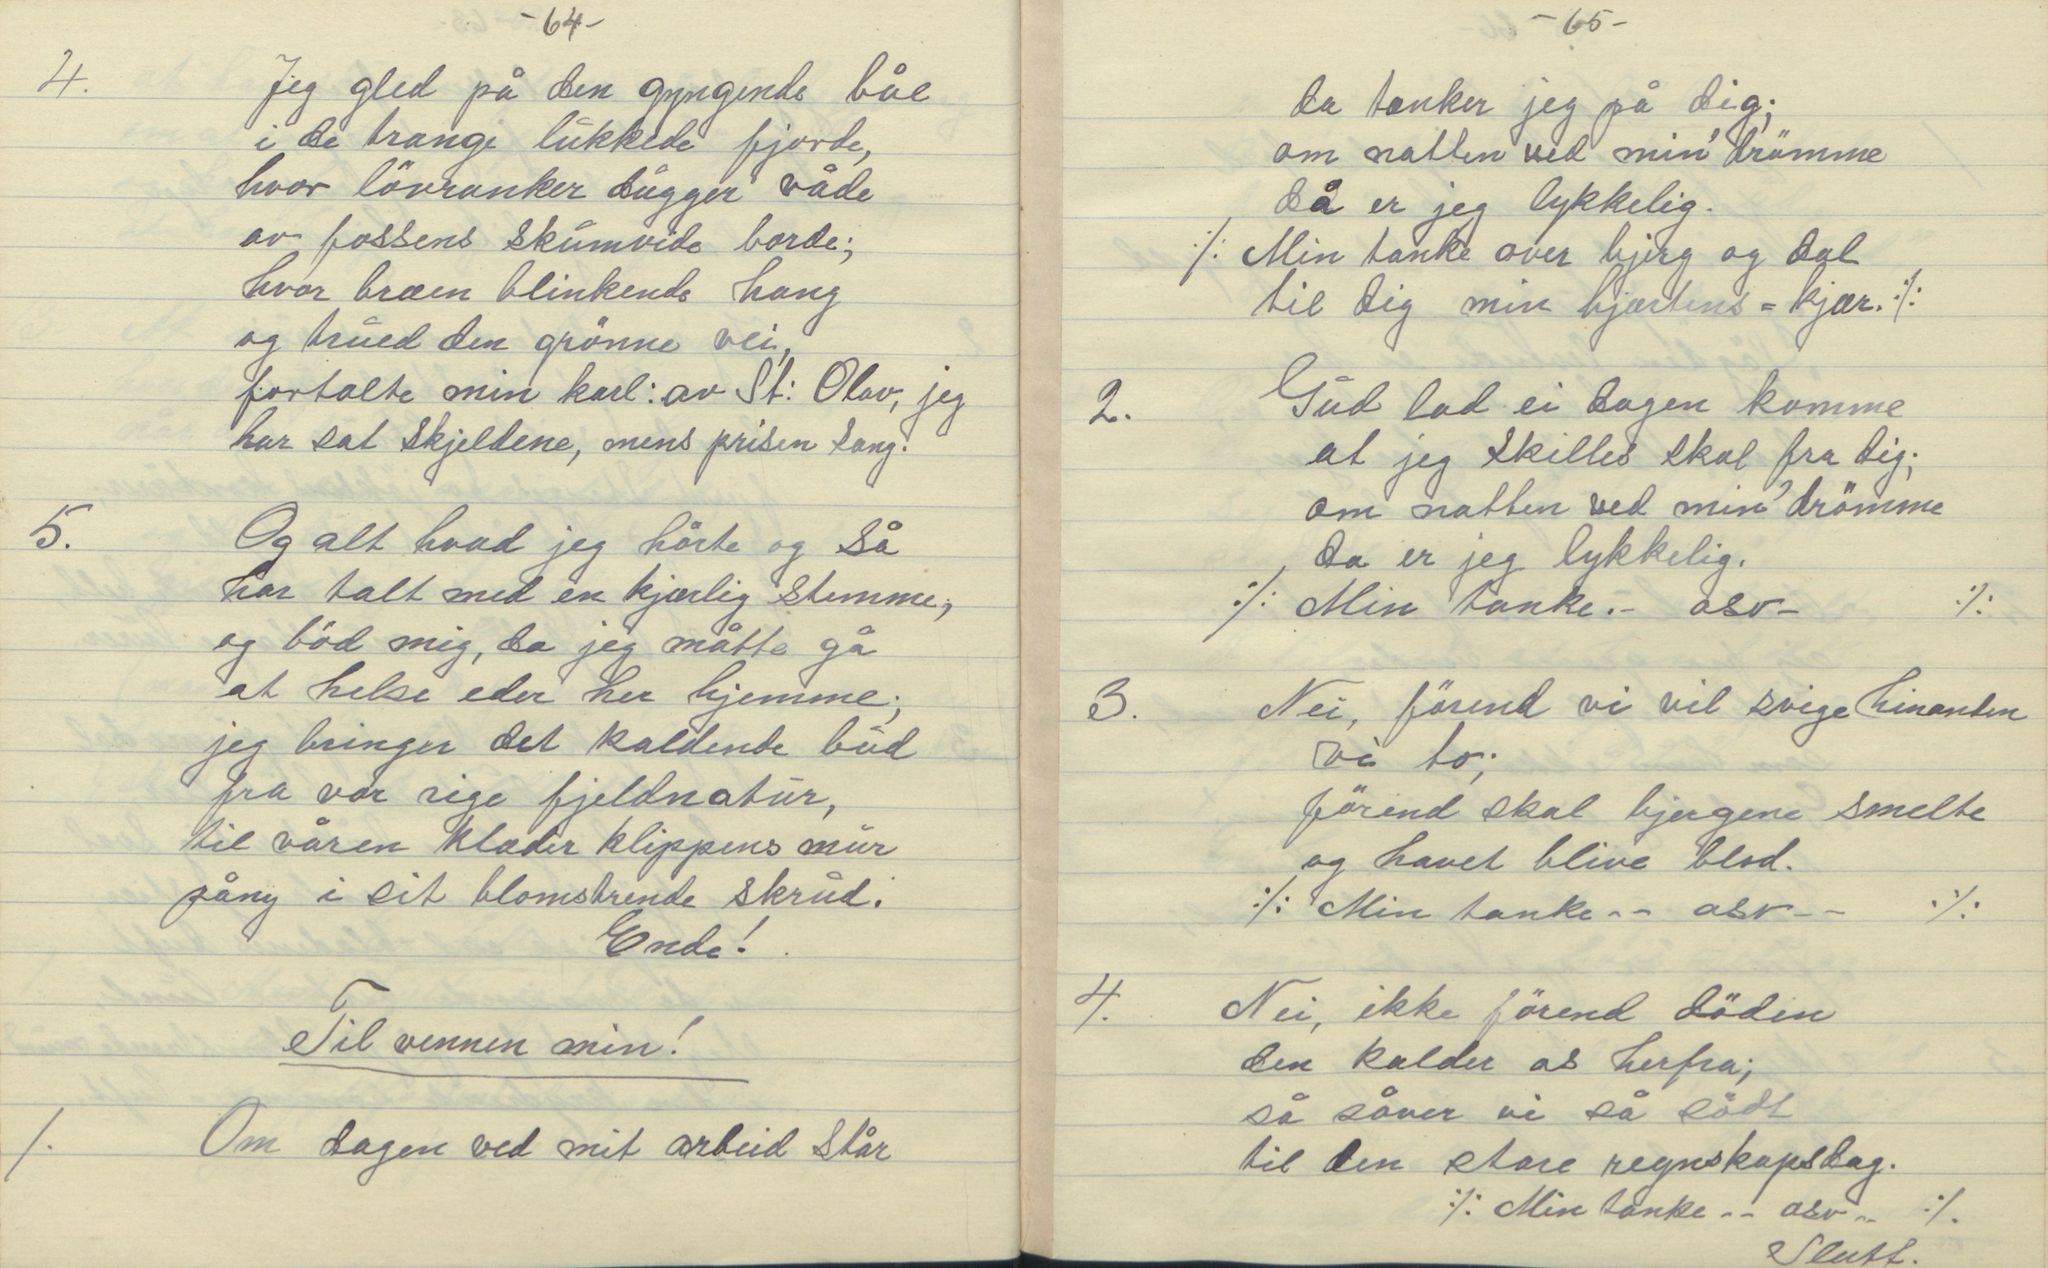 -64-
4. Jeg gled på den gyngende båe
i de trange lukkede fjorde,
hvor lövranker dugger våde
av fossens skumvide borde;
hvor bræen blinkende hang
og trued den grönne vei,
fortalte min karl: av St: Olav, jeg
har sat skjeldene, mens prisen sang.
5. Og alt hvad jeg hörte og så
har talt med en kjærlig stemme,
og böd mig, da jeg måtte gå
at helse eder her hjemme;
jeg bringer det kaldende bud
fra vor rige fjeldnatur,
til våren klæder klippens mur
påny i sit blomstrende skrud.
Ende!
Til vennen min!
1. Om dagen ved mit arbeid står
-65-
da tænker jeg på dig;
om natten ved min' drömme
då er jeg lykkelig.
:/: Min tanke over bjerg og dal
til dig min hjærtens = kjær. :/:
2. Gud lad ei dagen komme
at jeg skilles skal fra dig;
om natten ved min' drömme
da er jeg lykkelig.
:/: Min tanke.- osv- :/:
3. Nei, förend vi vil svige hinanden
vi to;
förend skal bjergene smelte
og havet blive blod.
:/: Min tanke -- osv-- :/:
4. Nei, ikke förend döden
den kalder os herfra;
så såver vi så södt
til den store regnskapsdag.
:/: Min tanke -- osv-- :/.
Slutt.